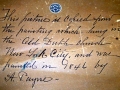 This picture is copied from
the painting which hung in
the Old Dutch church
New York City, and was
painted in 1846 by
A. Duyne